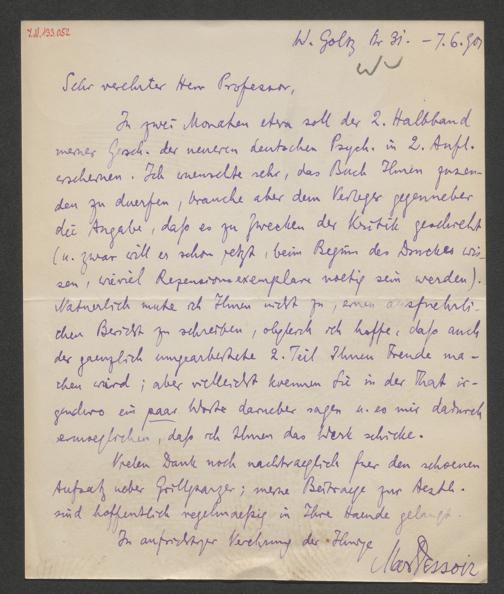 I.N.133.052
W. Goltz Str 31. – 7.6.901
Sehr verehrter Herr Professor,
In zwei Monaten etwa soll der 2. Halbband
meiner Gesch. der neueren deutschen Psych. in 2. Aufl.
erscheinen. Ich wuenschte sehr, das Buch Ihnen zusen-
den zu duerfen, brauche aber dem Verleger gegenueber
die Angabe, daß es zu Zwecken der Kritik geschieht
(u. zwar will er schon jetzt, beim Beginn des Druckes wis-
sen, wieviel Rezensionsexemplare noetig sein werden).
Natuerlich mute ich Ihnen nicht zu, einen ausfuehrli-
chen Bericht zu schreiben, obgleich ich hoffe, daß auch
der gaenzlich umgearbeitete 2. Teil Ihnen Freude ma-
chen wird; aber vielleicht koennen Sie in der That ir-
gendwo ein paar Worte darueber sagen u. es mir dadurch
ermoeglichen, daß ich Ihnen das Werk schicke.
Vielen Dank noch nachtraeglich fuer den schoenen
Aufsatz ueber Grillparzer; meine Beitraege zur Aesth.
sind hoffentlich regelmaeßig in Ihre Haende gelangt.
In aufrichtiger Verehrung der Ihrige
Max Dessoir